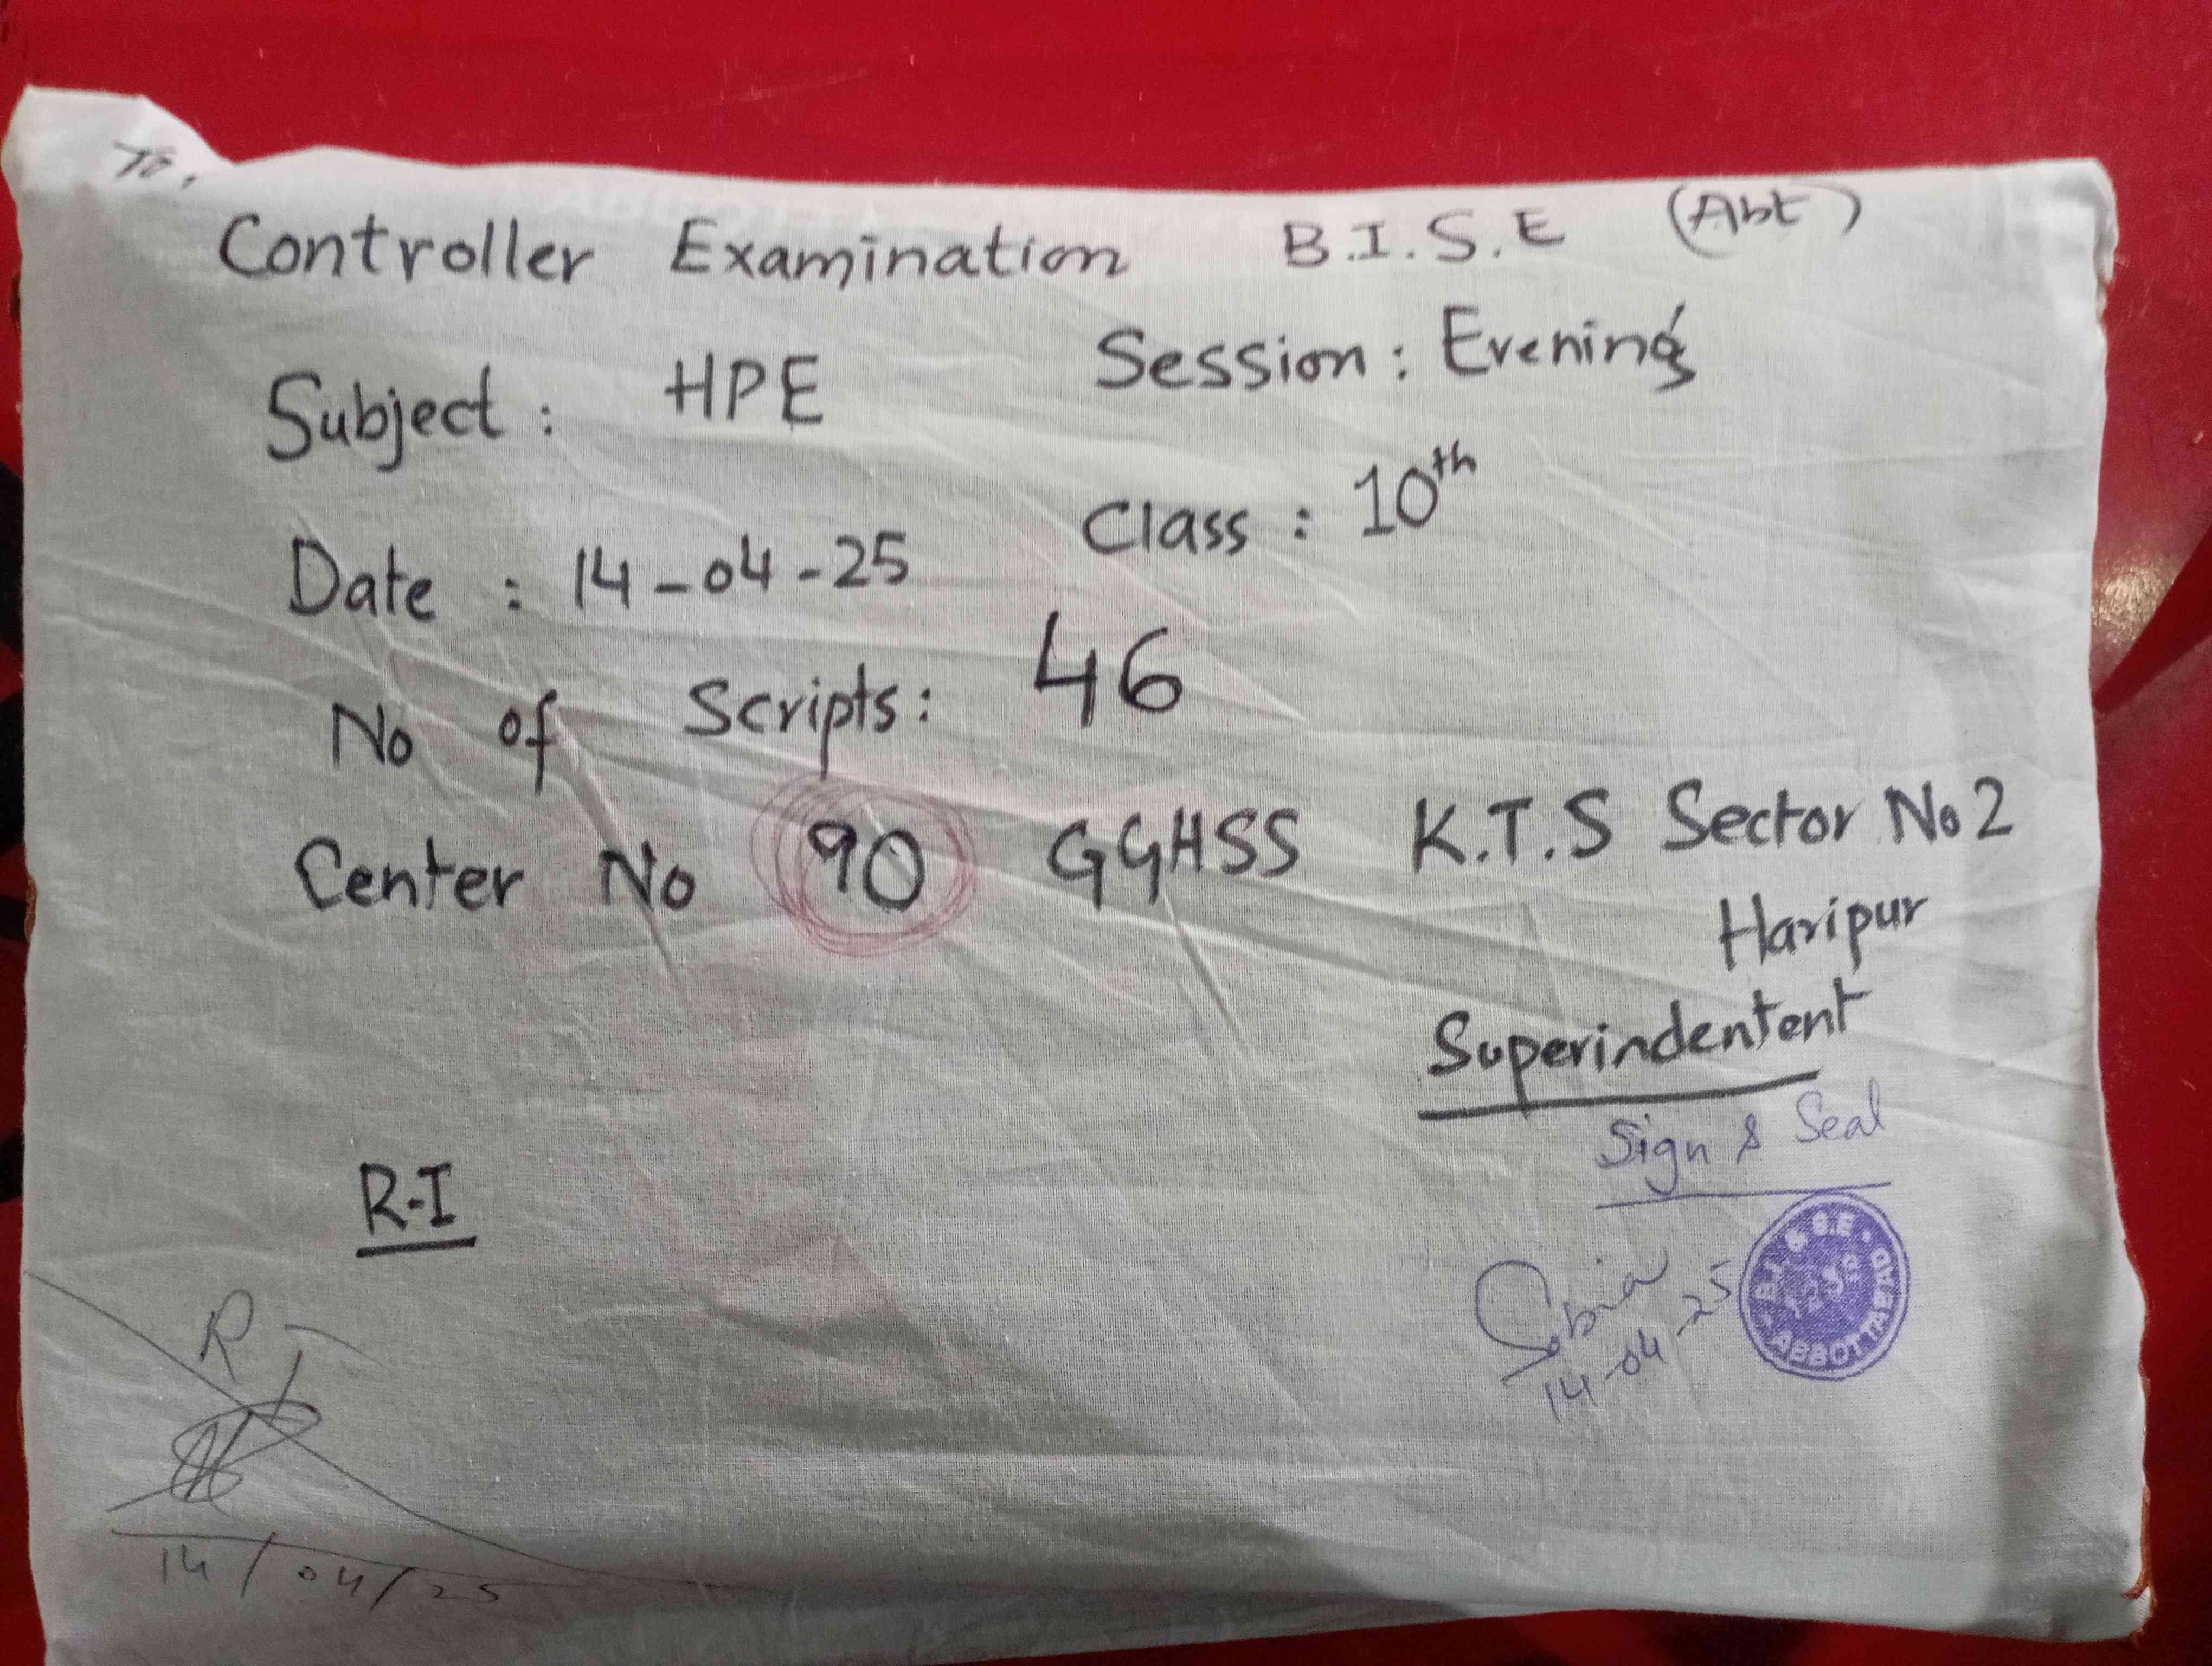 To,
Controller Examination B.I.S.E (Abt)
Subject : HPE Session : Evening
Date : 14-04-25 Class : 10th
No of Scripts: 46
Center No 90 GGHSS K.T.S Sector No 2
Haripur
Superindentent
Sign & Seal
R-I
Sobia
14-04-25
B.I. & S.E. ABBOTTABAD
R I
14/04/25